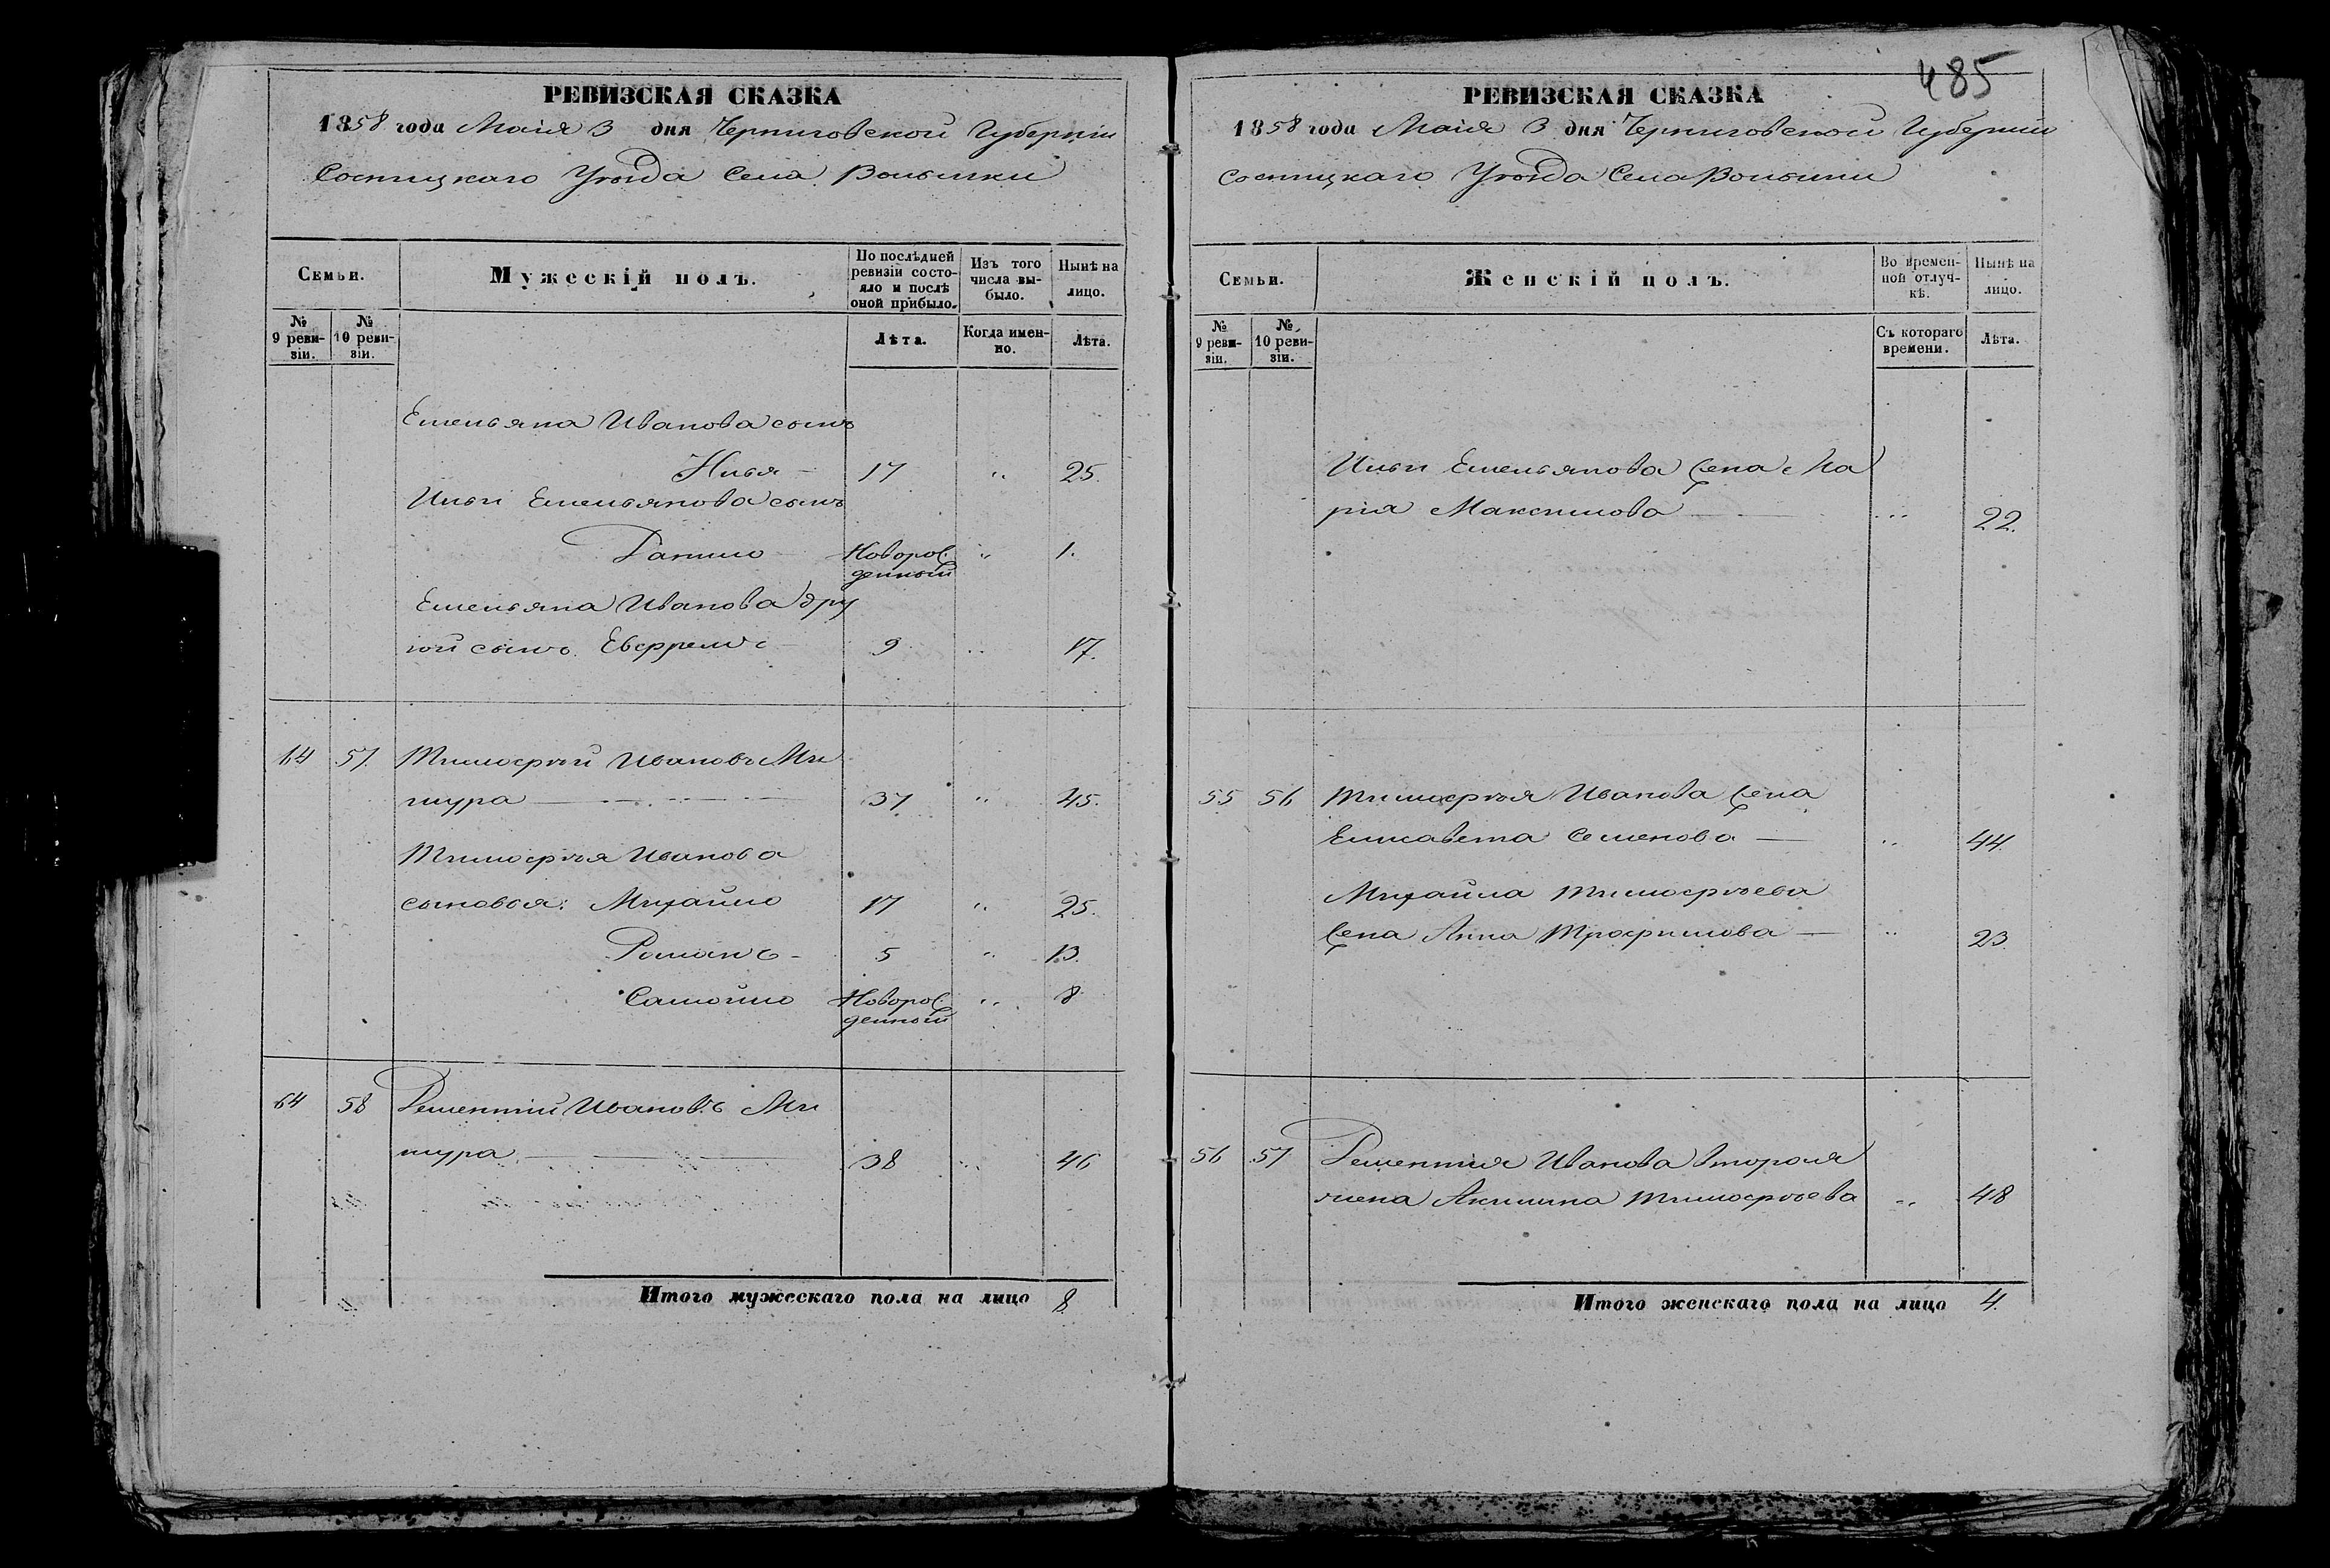 РЕВИЗСКАЯ СКАЗКА
1858 года Маія 3 дня Черниговской Губерніи
Сосницкаго Уѣзда Села Волынки
Семьи.
Мужескій полъ.
По послѣдней ревизіи состо-
яло и послѣ
оной прибыло.
Изъ того
числа вы-
было.
Нынѣ на
лицо.
№
9 реви-
зіи.
№
10 реви-
зіи.
Лѣта.
Когда имен-
но.
Лѣта.
Емельяна Иванова сынъ
Илья 17 " 25.
Ильи Емельянова сынъ
Данило Новорож- " 1.
денный
Емельяна Иванова дру
гой сынъ Евсрремъ 9 " 17.
64 57. Тимофѣй Ивановъ Ми
шура 37 " 45.
Тимофѣя Иванова
сыновья: Михайло 17 " 25.
Романъ 5 " 13.
Самойло Новорож- " 8
денный
64 58 Дементій Ивановъ Ми
шура 38 " 46
Итого мужескаго пола на лицо 8.
485
РЕВИЗСКАЯ СКАЗКА
1858 года Маія 3 дня Черниговской Губерніи
Сосницкаго Уѣзда Села Волынки
Семьи.
Женскій полъ.
Во времен-
ной отлуч-
кѣ.
Нынѣ на
лицо.
№
9 реви-
зіи.
№
10 реви-
зіи.
Съ котораго
времени.
Лѣта.
Ильи Емельянова жена Ма
рія Максимова " 22.
55 56 Тимофѣя Иванова жена
Елисавета Семенова " 44.
Михайла Тимофѣева
жена Анна Трофимова " 23.
56 57 Дементія Иванова вторая
жена Акилина Тимофѣева " 48
Итого женскаго пола на лицо 4.